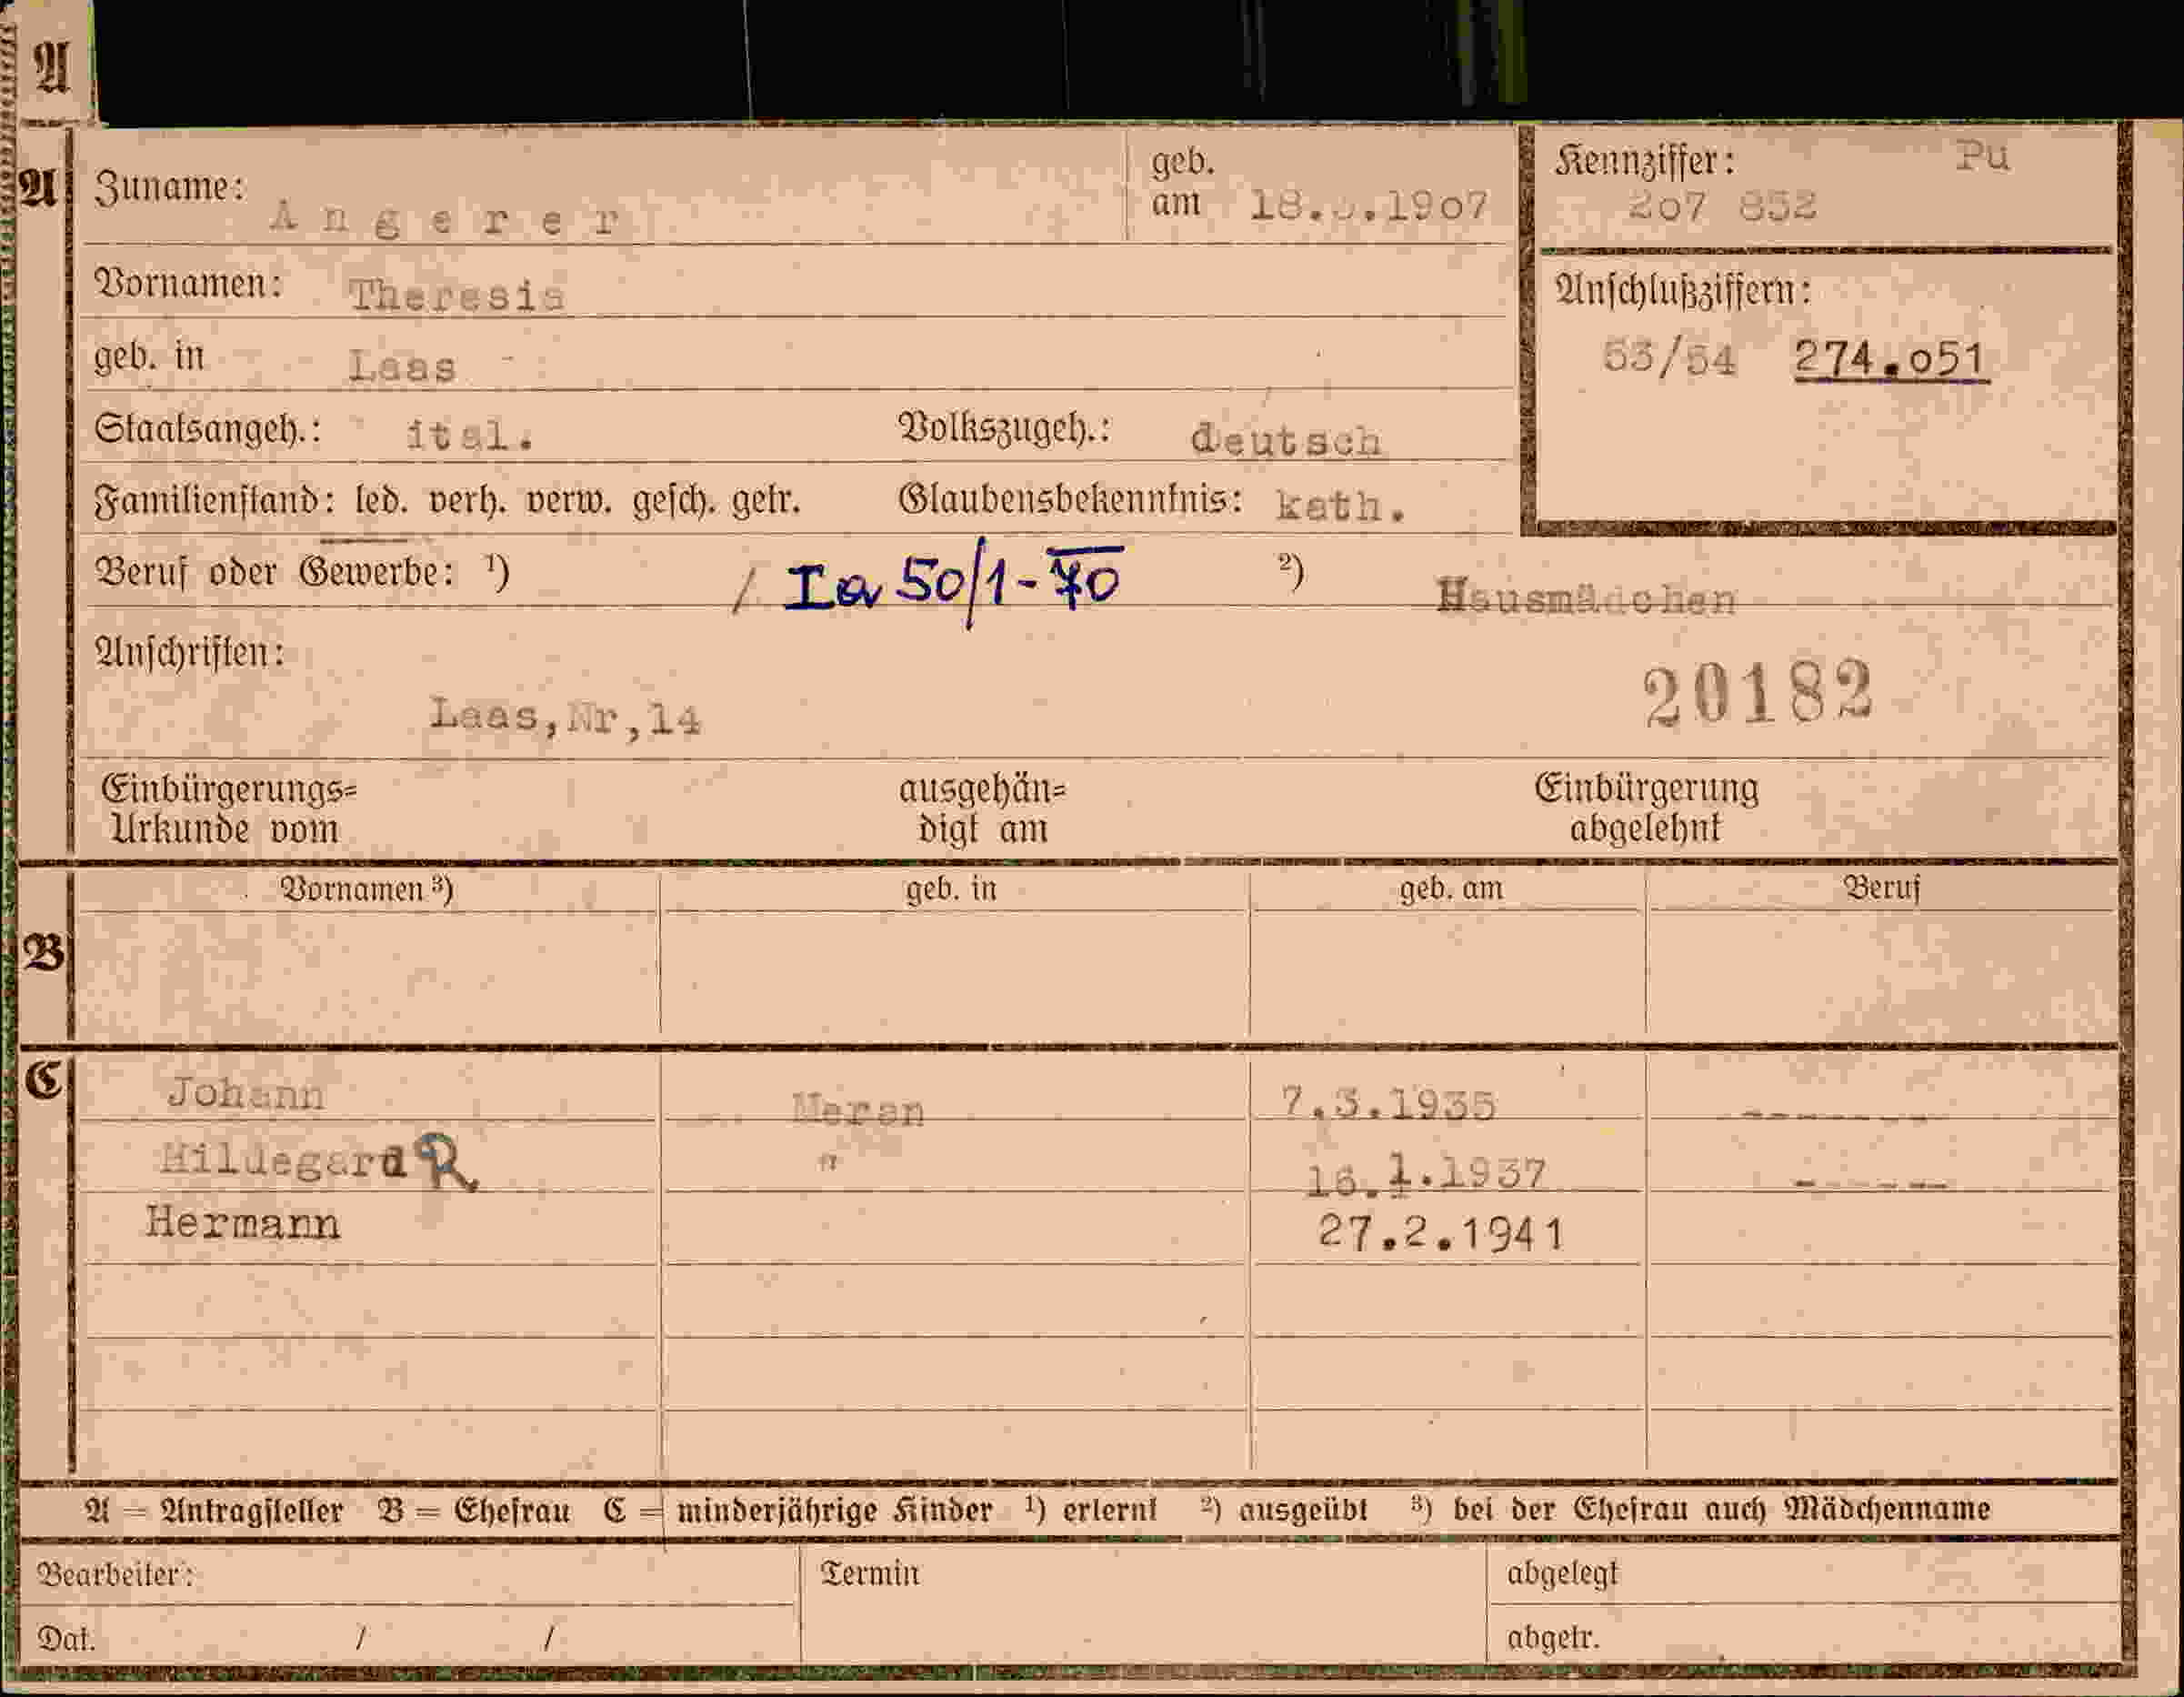 A
A
Zuname: Angerer geb. am 18. .1907
Kennziffer: Pu
207 852
Vornamen: Theresia
Anschlußziffern:
53/54 274.051
geb. in Laas
Staatsangeh.: ital. Volkszugeh.: deutsch
Familienstand: led. verh. verw. gesch. getr. Glaubensbekenntnis: kath.
Beruf oder Gewerbe: ¹) / Ia 50/1-70 ²) Hausmädchen
Anschriften:
Laas,Nr,14
20182
Einbürgerungs=
Urkunde vom
ausgehän=
digt am
Einbürgerung
abgelehnt
B
Vornamen ³) geb. in geb. am Beruf
C
Johann Meran 7.3.1935 -------
Hildegard R. " 16.1.1937 ------
Hermann 27.2.1941
A = Antragsteller B = Ehefrau C = minderjährige Kinder ¹) erlernt ²) ausgeübt ³) bei der Ehefrau auch Mädchenname
Bearbeiter: Termin abgelegt
Dat. / / abgetr.